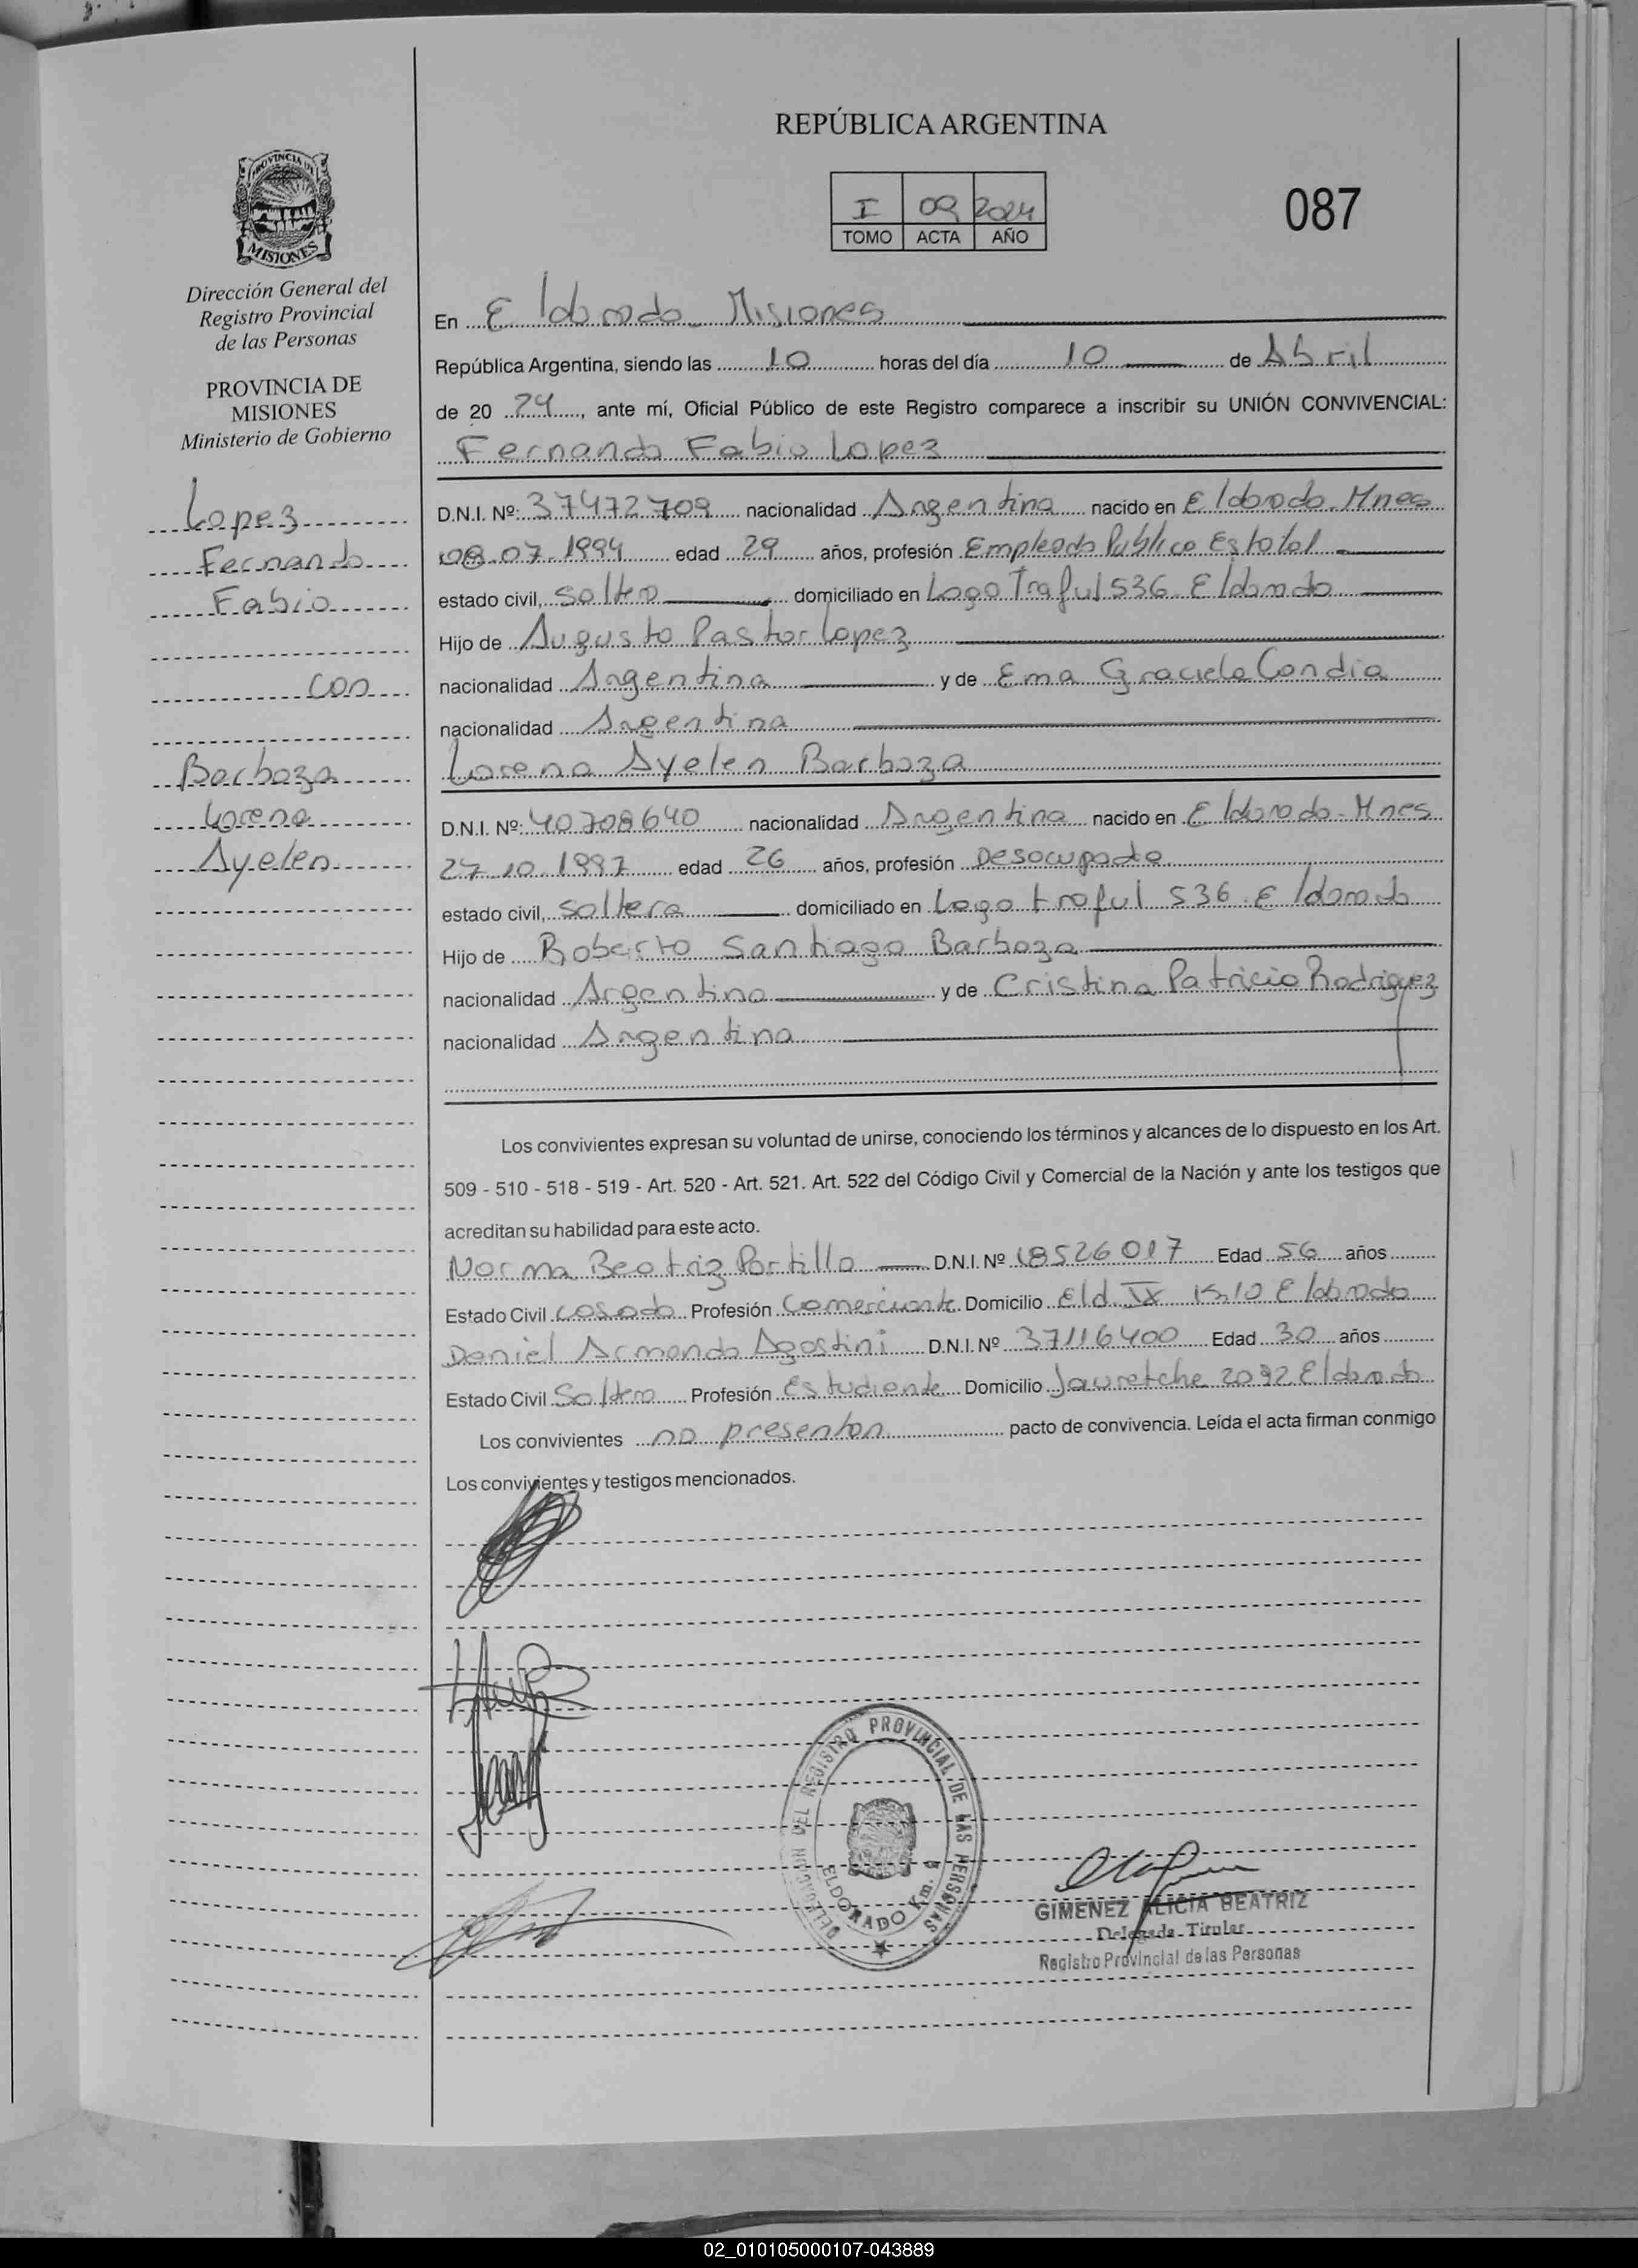 REPÚBLICA ARGENTINA
I 09 2024
TOMO ACTA AÑO
087
PROVINCIA DE
MISIONES
Dirección General del
Registro Provincial
de las Personas
PROVINCIA DE
MISIONES
Ministerio de Gobierno
Lopez
Fernando
Fabio
con
Barboza
Lorena
Ayelen
En Eldorado - Misiones
República Argentina, siendo las 10 horas del día 10 de Abril
de 20 24, ante mí, Oficial Público de este Registro comparece a inscribir su UNIÓN CONVIVENCIAL:
Fernando Fabio Lopez
D.N.I. Nº: 37472709 nacionalidad Argentina nacido en Eldorado - Mnes
08.07.1994 edad 29 años, profesión Empleado Publico Estatal
estado civil, soltero domiciliado en Lago Traful 536 - Eldorado
Hijo de Augusto Pastor Lopez
nacionalidad Argentina y de Ema Graciela Condia
nacionalidad Argentina
Lorena Ayelen Barboza
D.N.I. Nº: 40708640 nacionalidad Argentina nacido en Eldorado - Mnes
27.10.1997 edad 26 años, profesión Desocupada
estado civil, soltera domiciliado en Lago traful 536 - Eldorado
Hijo de Roberto Santiago Barboza
nacionalidad Argentina y de Cristina Patricia Rodriguez
nacionalidad Argentina
Los convivientes expresan su voluntad de unirse, conociendo los términos y alcances de lo dispuesto en los Art.
509 - 510 - 518 - 519 - Art. 520 - Art. 521. Art. 522 del Código Civil y Comercial de la Nación y ante los testigos que
acreditan su habilidad para este acto.
Norma Beatriz Portillo D.N.I. Nº 18526017 Edad 56 años
Estado Civil casada Profesión Comerciante Domicilio Eld. IX Eldorado
Daniel Armando Agostini D.N.I. Nº 37116400 Edad 30 años
Estado Civil Soltero Profesión Estudiante Domicilio Jauretche 2092 Eldorado
Los convivientes no presentan pacto de convivencia. Leída el acta firman conmigo
Los convivientes y testigos mencionados.
DELEGACION DEL REGISTRO PROVINCIAL DE LAS PERSONAS
ELDORADO Km. 9
GIMENEZ ALICIA BEATRIZ
Delegada Titular
Registro Provincial de las Personas
02_010105000107-043889